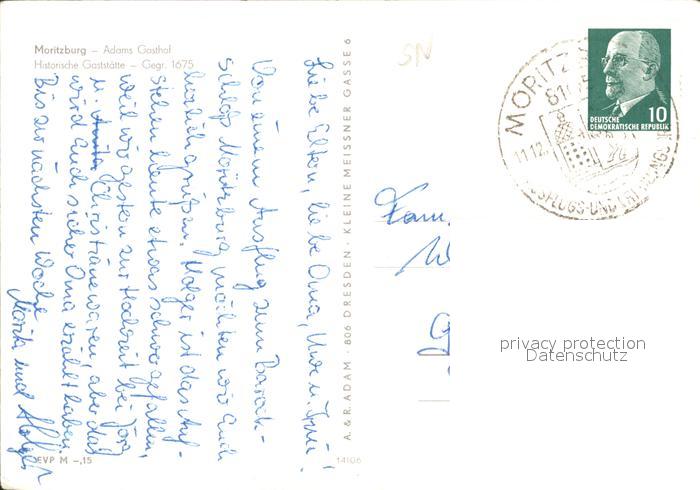 Moritzburg – Adams Gasthof
Historische Gaststätte – Gegr. 1675
Liebe Eltern, liebe Oma, Uwe u.
Von einem Ausflug zum Barock-
schloß Moritzburg möchten wir Euch
herzlich grüßen. Holger ist das Auf-
stehen heute etwas schwergefallen,
weil wir gestern zur Hochzeit bei Jörg
u. Christiane waren, aber das
wird Euch sicher Oma erzählt haben.
Bis zur nächsten Woche
und Holger
EVP M –,15
A. & R. ADAM · 806 DRESDEN · KLEINE MEISSNER GASSE 6
14106
SN
Fam.
W
G
MORITZ
81
11.12.
AUSFLUGS-UND
DEUTSCHE
DEMOKRATISCHE REPUBLIK
10
privacy protection
Datenschutz